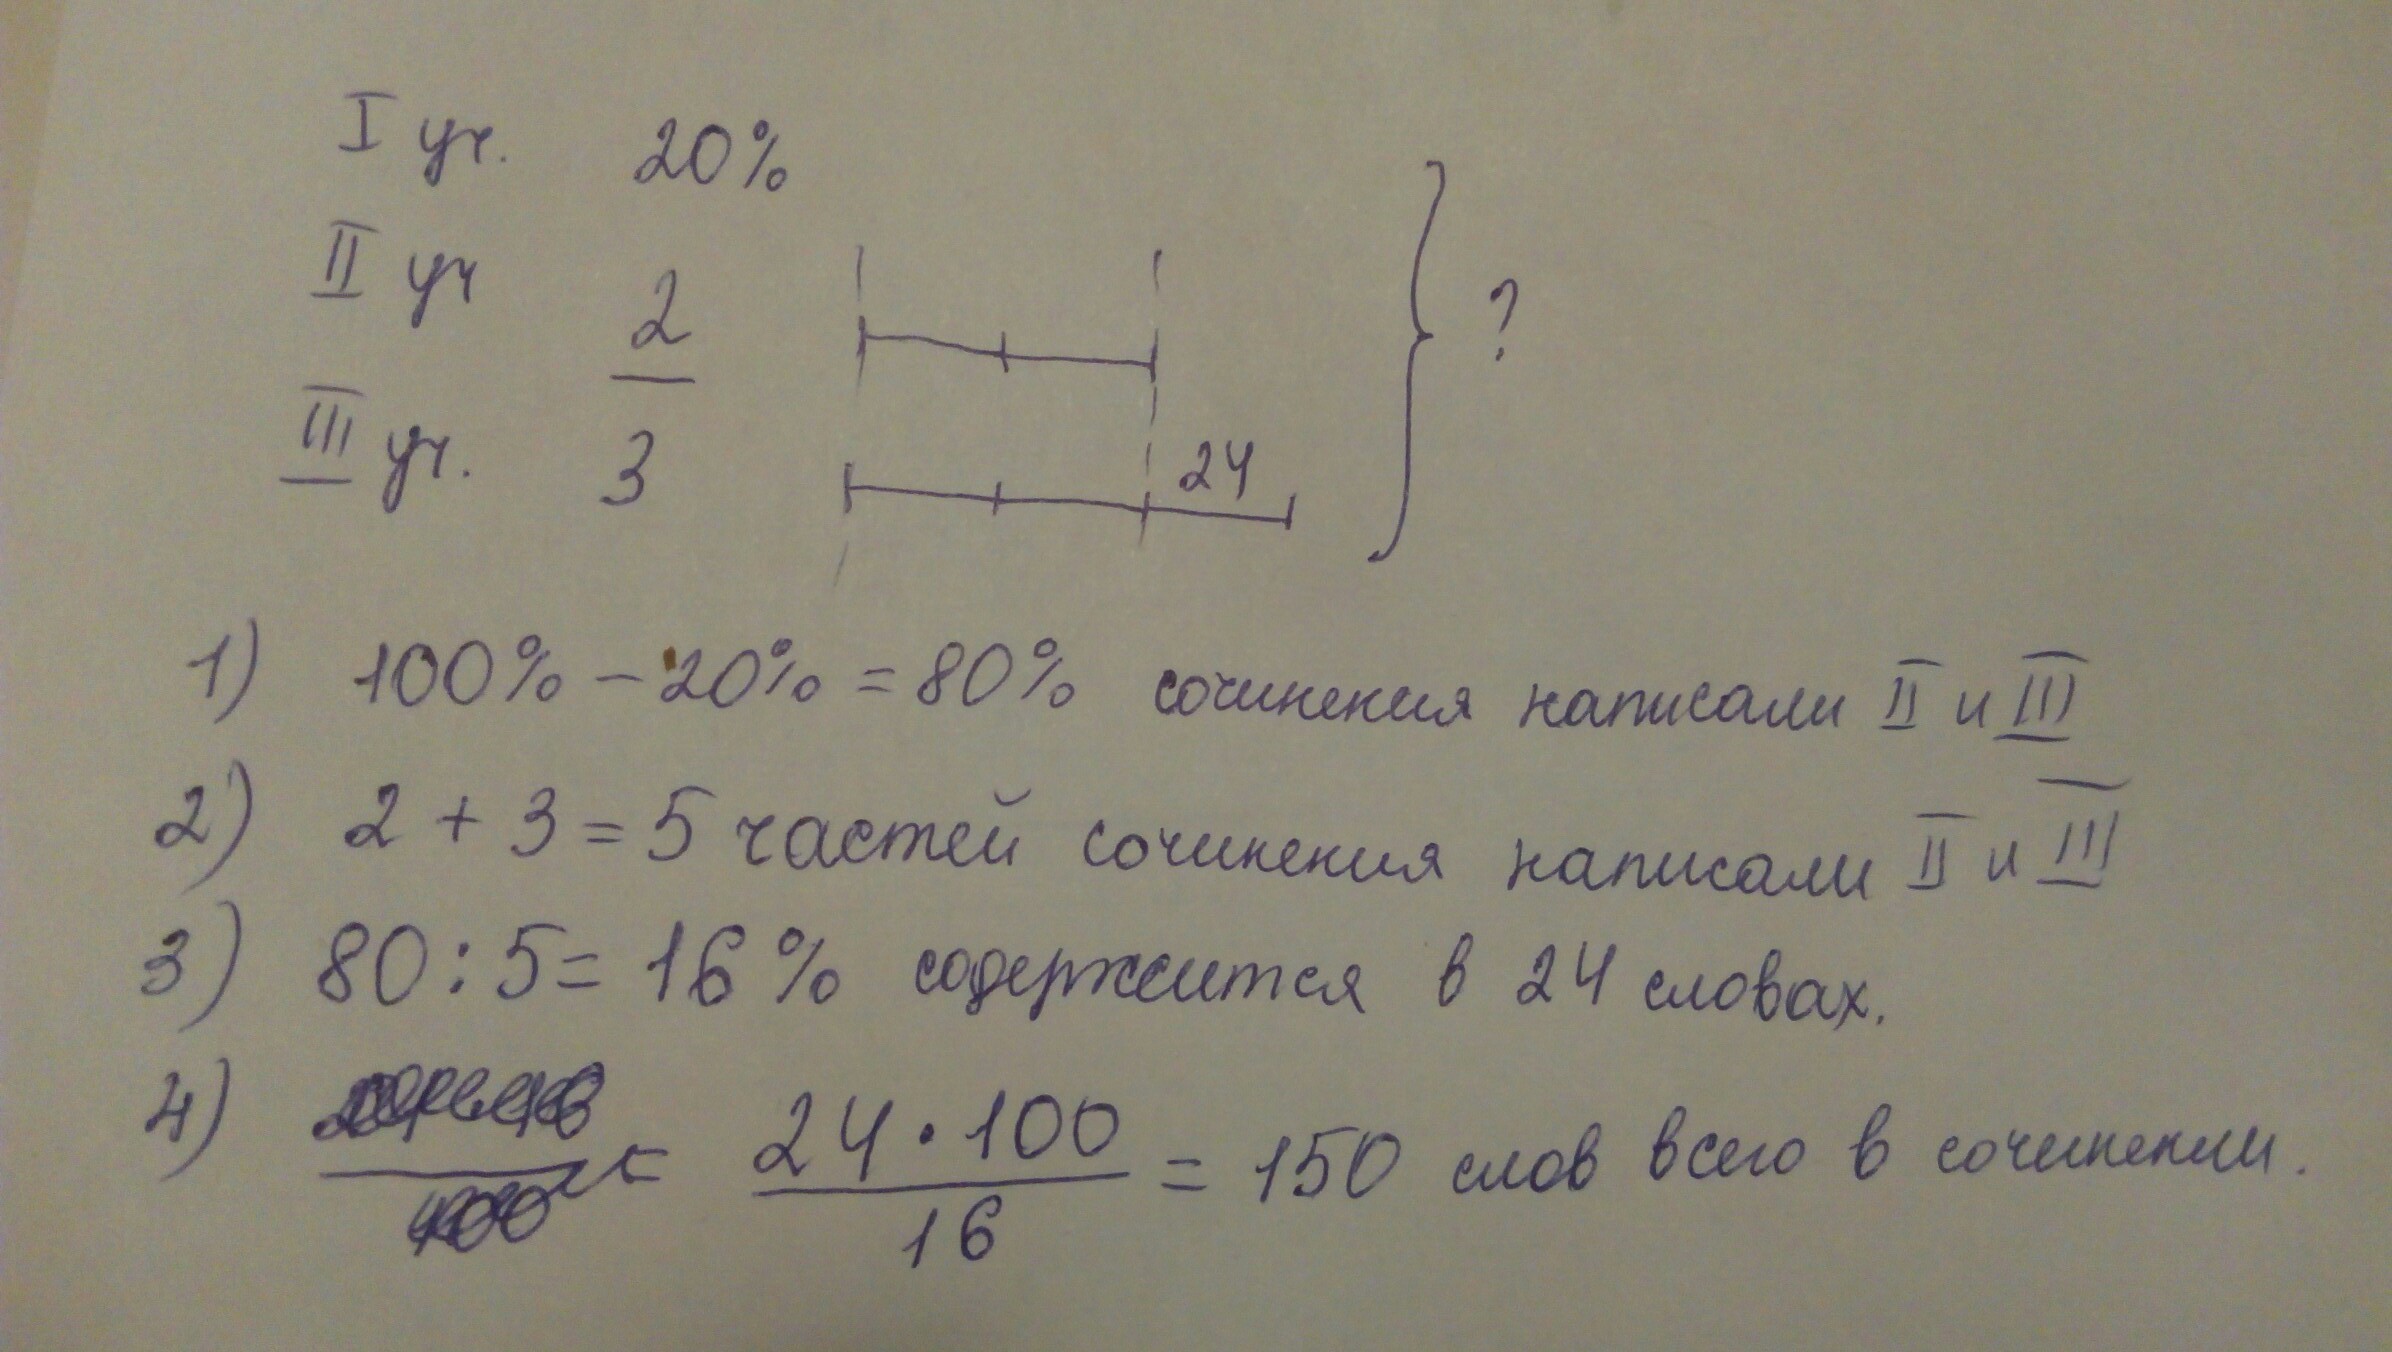 I уч. 20%
II уч 2
III уч. 3
24
?
1) 100% - 20% = 80% сочинения написали II и III
2) 2 + 3 = 5 частей сочинения написали II и III
3) 80 : 5 = 16% содержится в 24 словах.
4) = 24 · 100 / 16 = 150 слов всего в сочинении.